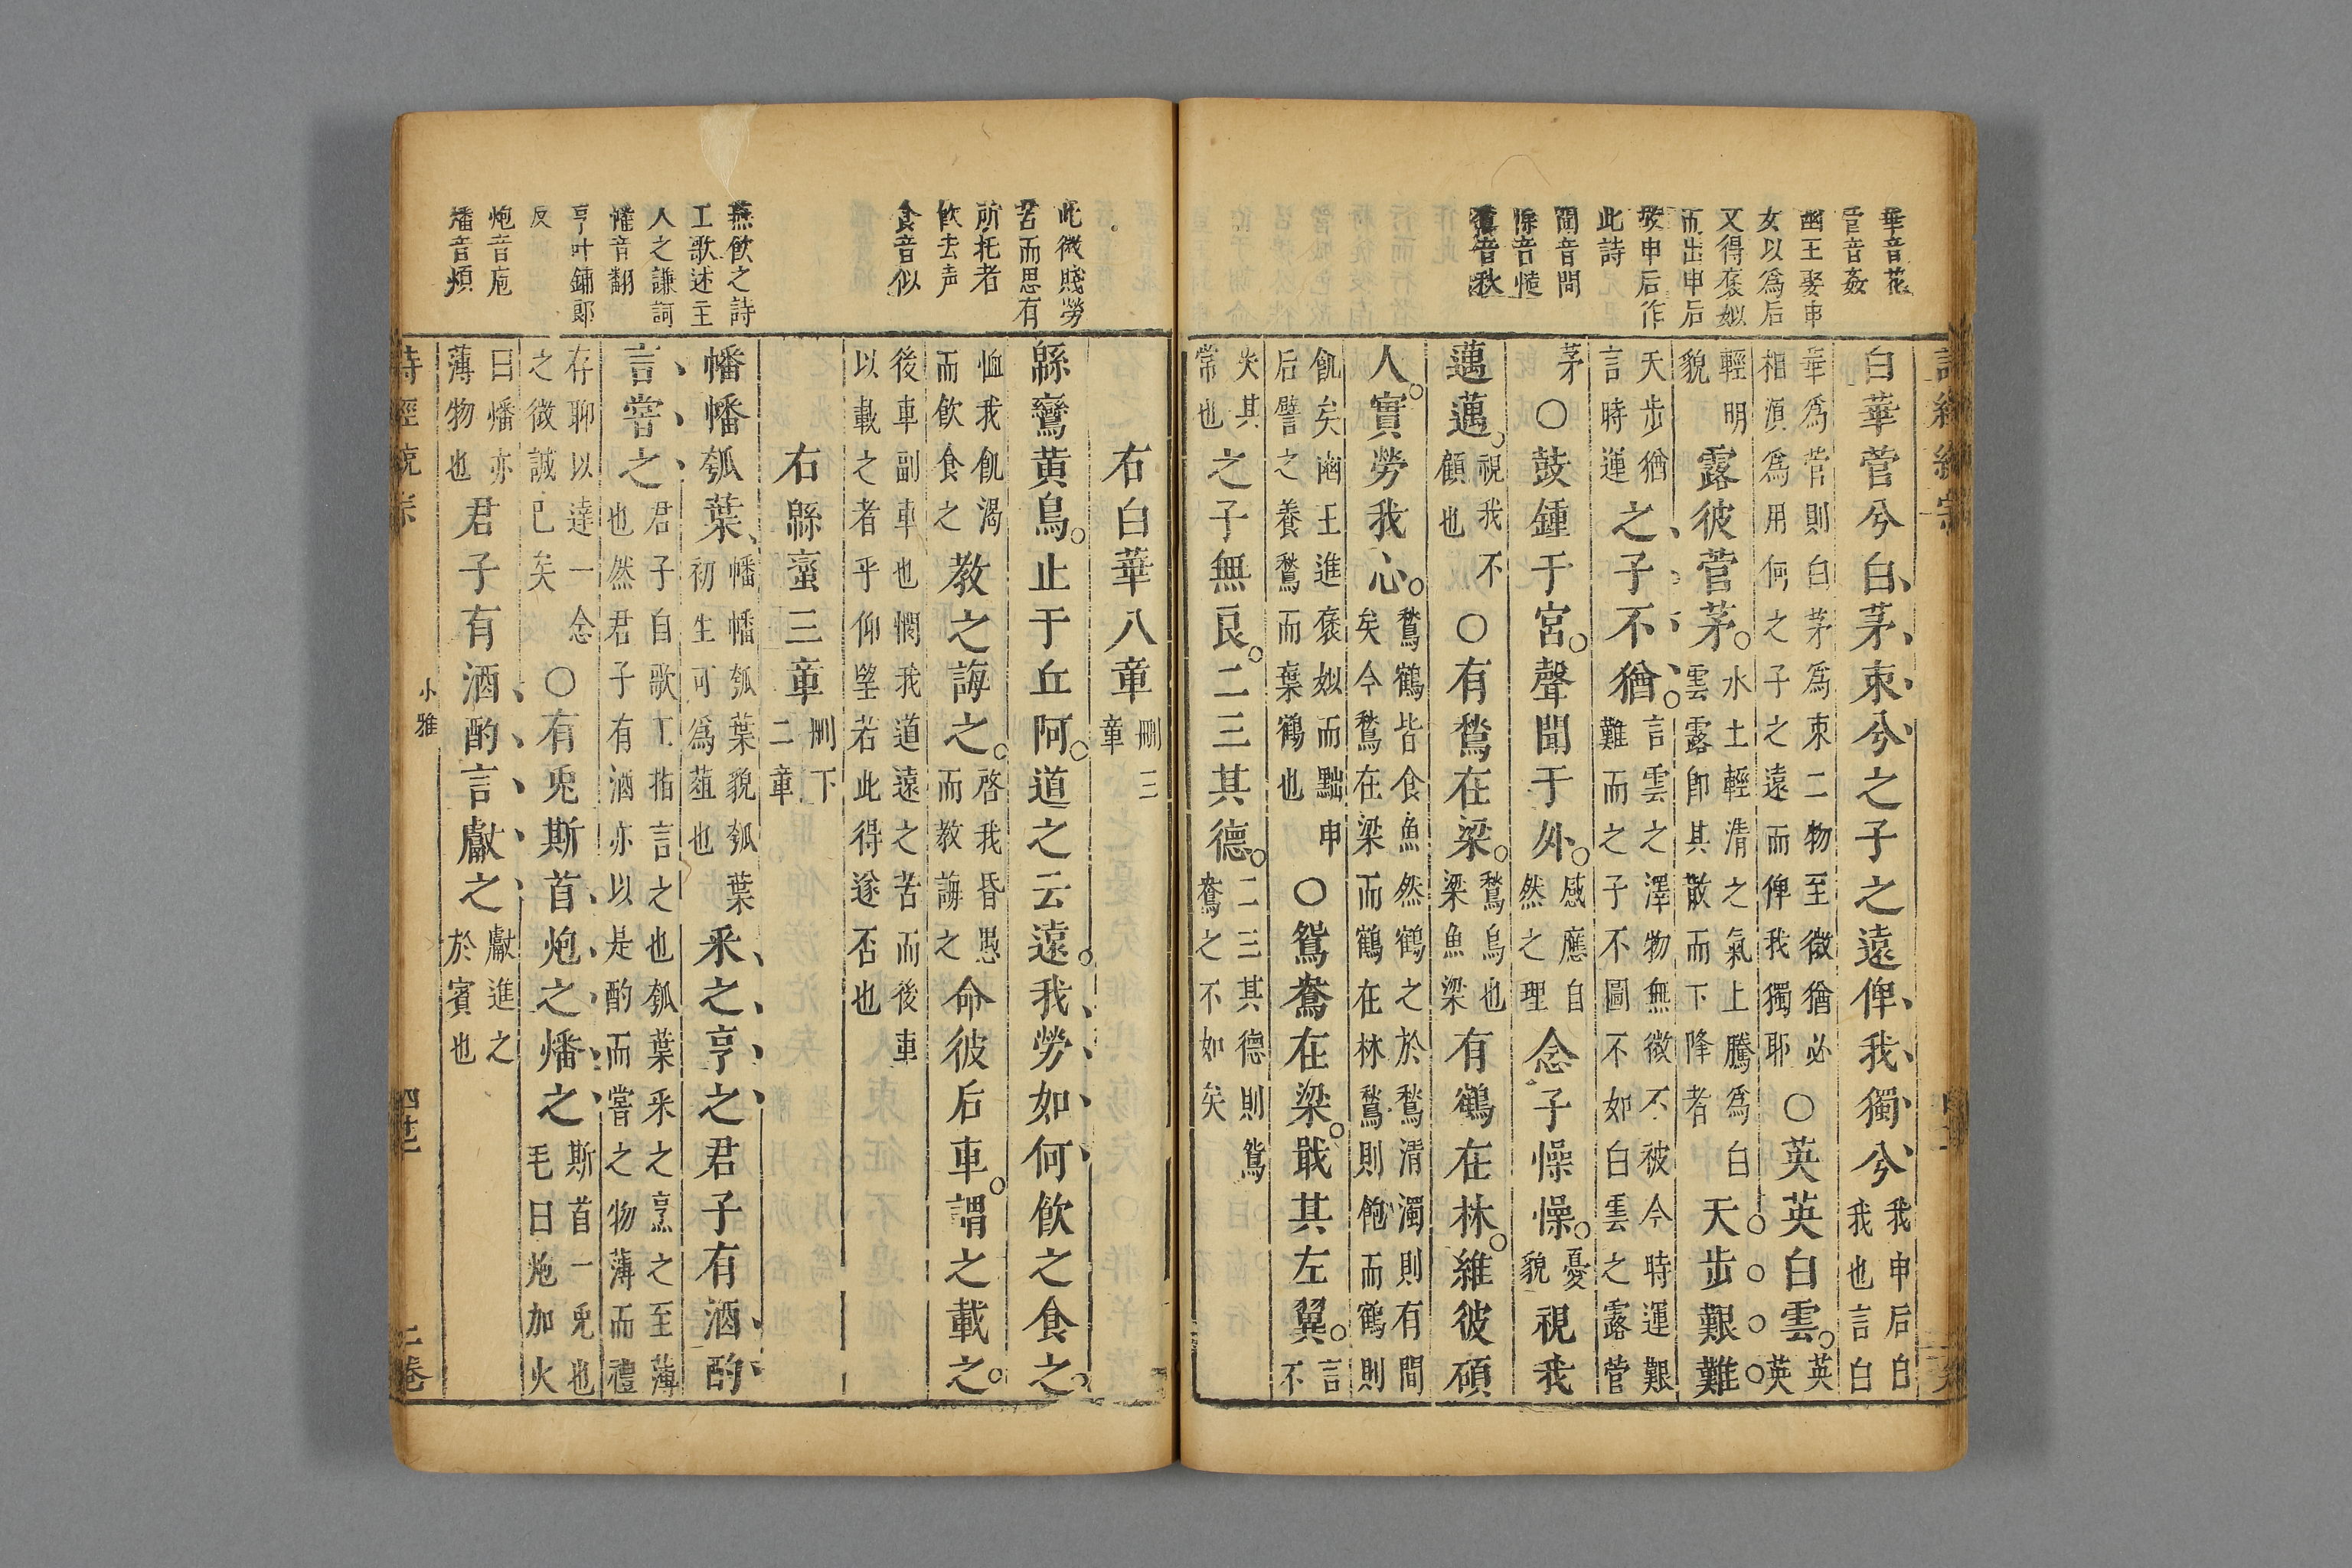 華音花
菅音姦
幽王娶申
女以爲后
又得褒姒
而出申后
故申后作
此詩
聞音問
懆音慥
鶖音秋
白華菅兮白茅束兮之子之遠俾我獨兮我申后自我也言白
華爲菅則白茅爲束二物至微猶必相湏爲用何之子之遠而俾我獨耶○英英白雲英英
輕明貌露彼菅茅水土輕清之氣上騰爲白雲露即其散而下降者天步艱難
天步猶言時運之子不猶言雲之澤物無微不被今時運艱難而之子不圖不如白雲之露菅
茅○鼓鍾于宮聲聞于外感應自然之理念子懆懆憂貌視我
邁邁視我不顧也○有鶖在梁鶖鳥也梁魚梁有鶴在林維彼碩
人實勞我心鶖鶴皆食魚然鶴之於鶖清濁則有間矣今鶖在梁而鶴在林鶖則飽而鶴則
飢矣幽王進褒姒而黜申后譬之養鶖而棄鶴也○鴛鴦在梁戢其左翼言不
失其常也之子無良二三其德二三其德則鴛鴦之不如矣
此微賤勞
苦而思有
所托者
飲去声
食音似
燕飲之詩
工歌述主
人之謙詞
幡音翻
亨叶鋪郎
反
炮音庖
燔音煩
右白華八章刪三章
緜蠻黃鳥止于丘阿道之云遠我勞如何飲之食之
恤我飢渴而飲食之教之誨之啓我昏愚而教誨之命彼后車謂之載之
後車副車也憫我道遠之苦而後車以載之者乎仰望若此得遂否也
右緜蠻三章刪下二章
幡幡瓠葉幡幡瓠葉貌瓠葉初生可爲葅也采之亨之君子有酒酌
言嘗之君子自歌工指言之也瓠葉采之烹之至薄也然君子有酒亦以是酌而嘗之物薄而禮
存聊以達一念之微誠已矣○有兎斯首炮之燔之斯首一兎也毛曰炮加火
曰燔亦薄物也君子有酒酌言獻之獻進之於賓也
小雅